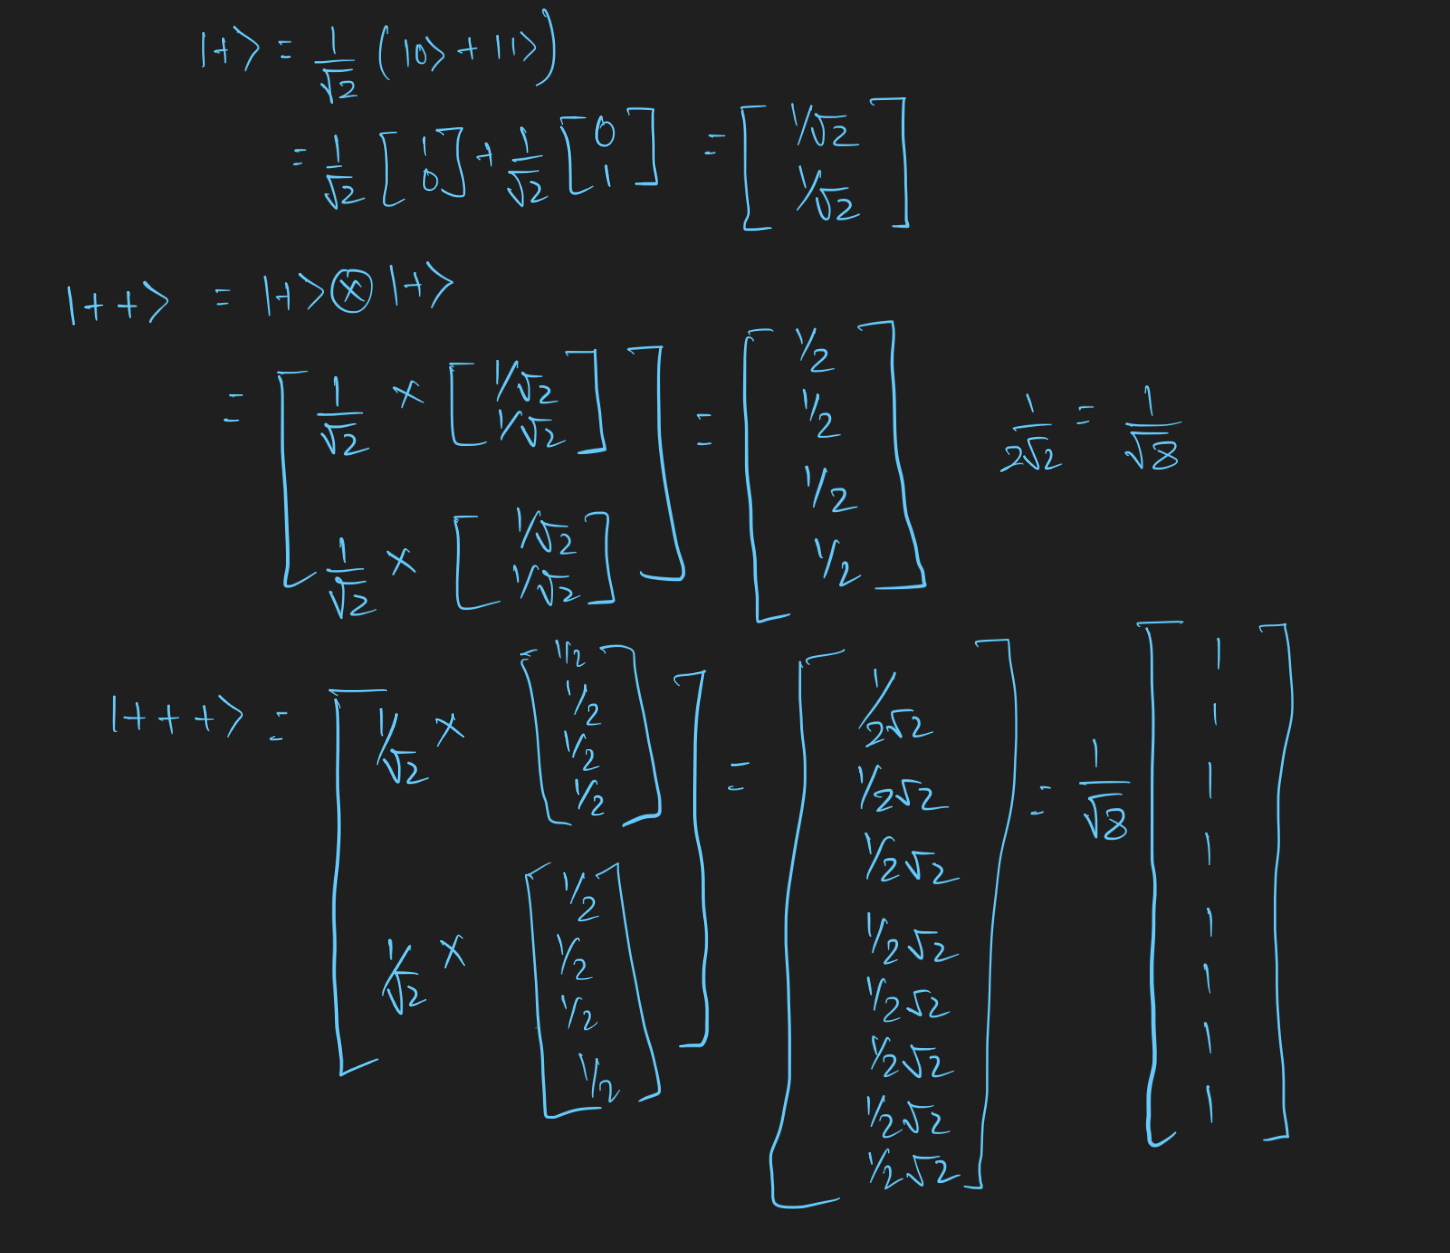 |+> = 1/√2 (|0> + |1>)
= 1/√2 [1 0] + 1/√2 [0 1] = [1/√2 1/√2]
|++> = |+> ⊗ |+>
= [1/√2 × [1/√2 1/√2] 1/√2 × [1/√2 1/√2]] = [1/2 1/2 1/2 1/2]
1/2√2 = 1/√8
|+++> = [1/√2 × [1/2 1/2 1/2 1/2] 1/√2 × [1/2 1/2 1/2 1/2]] = [1/2√2 1/2√2 1/2√2 1/2√2 1/2√2 1/2√2 1/2√2 1/2√2] = 1/√8 [1 1 1 1 1 1 1 1]